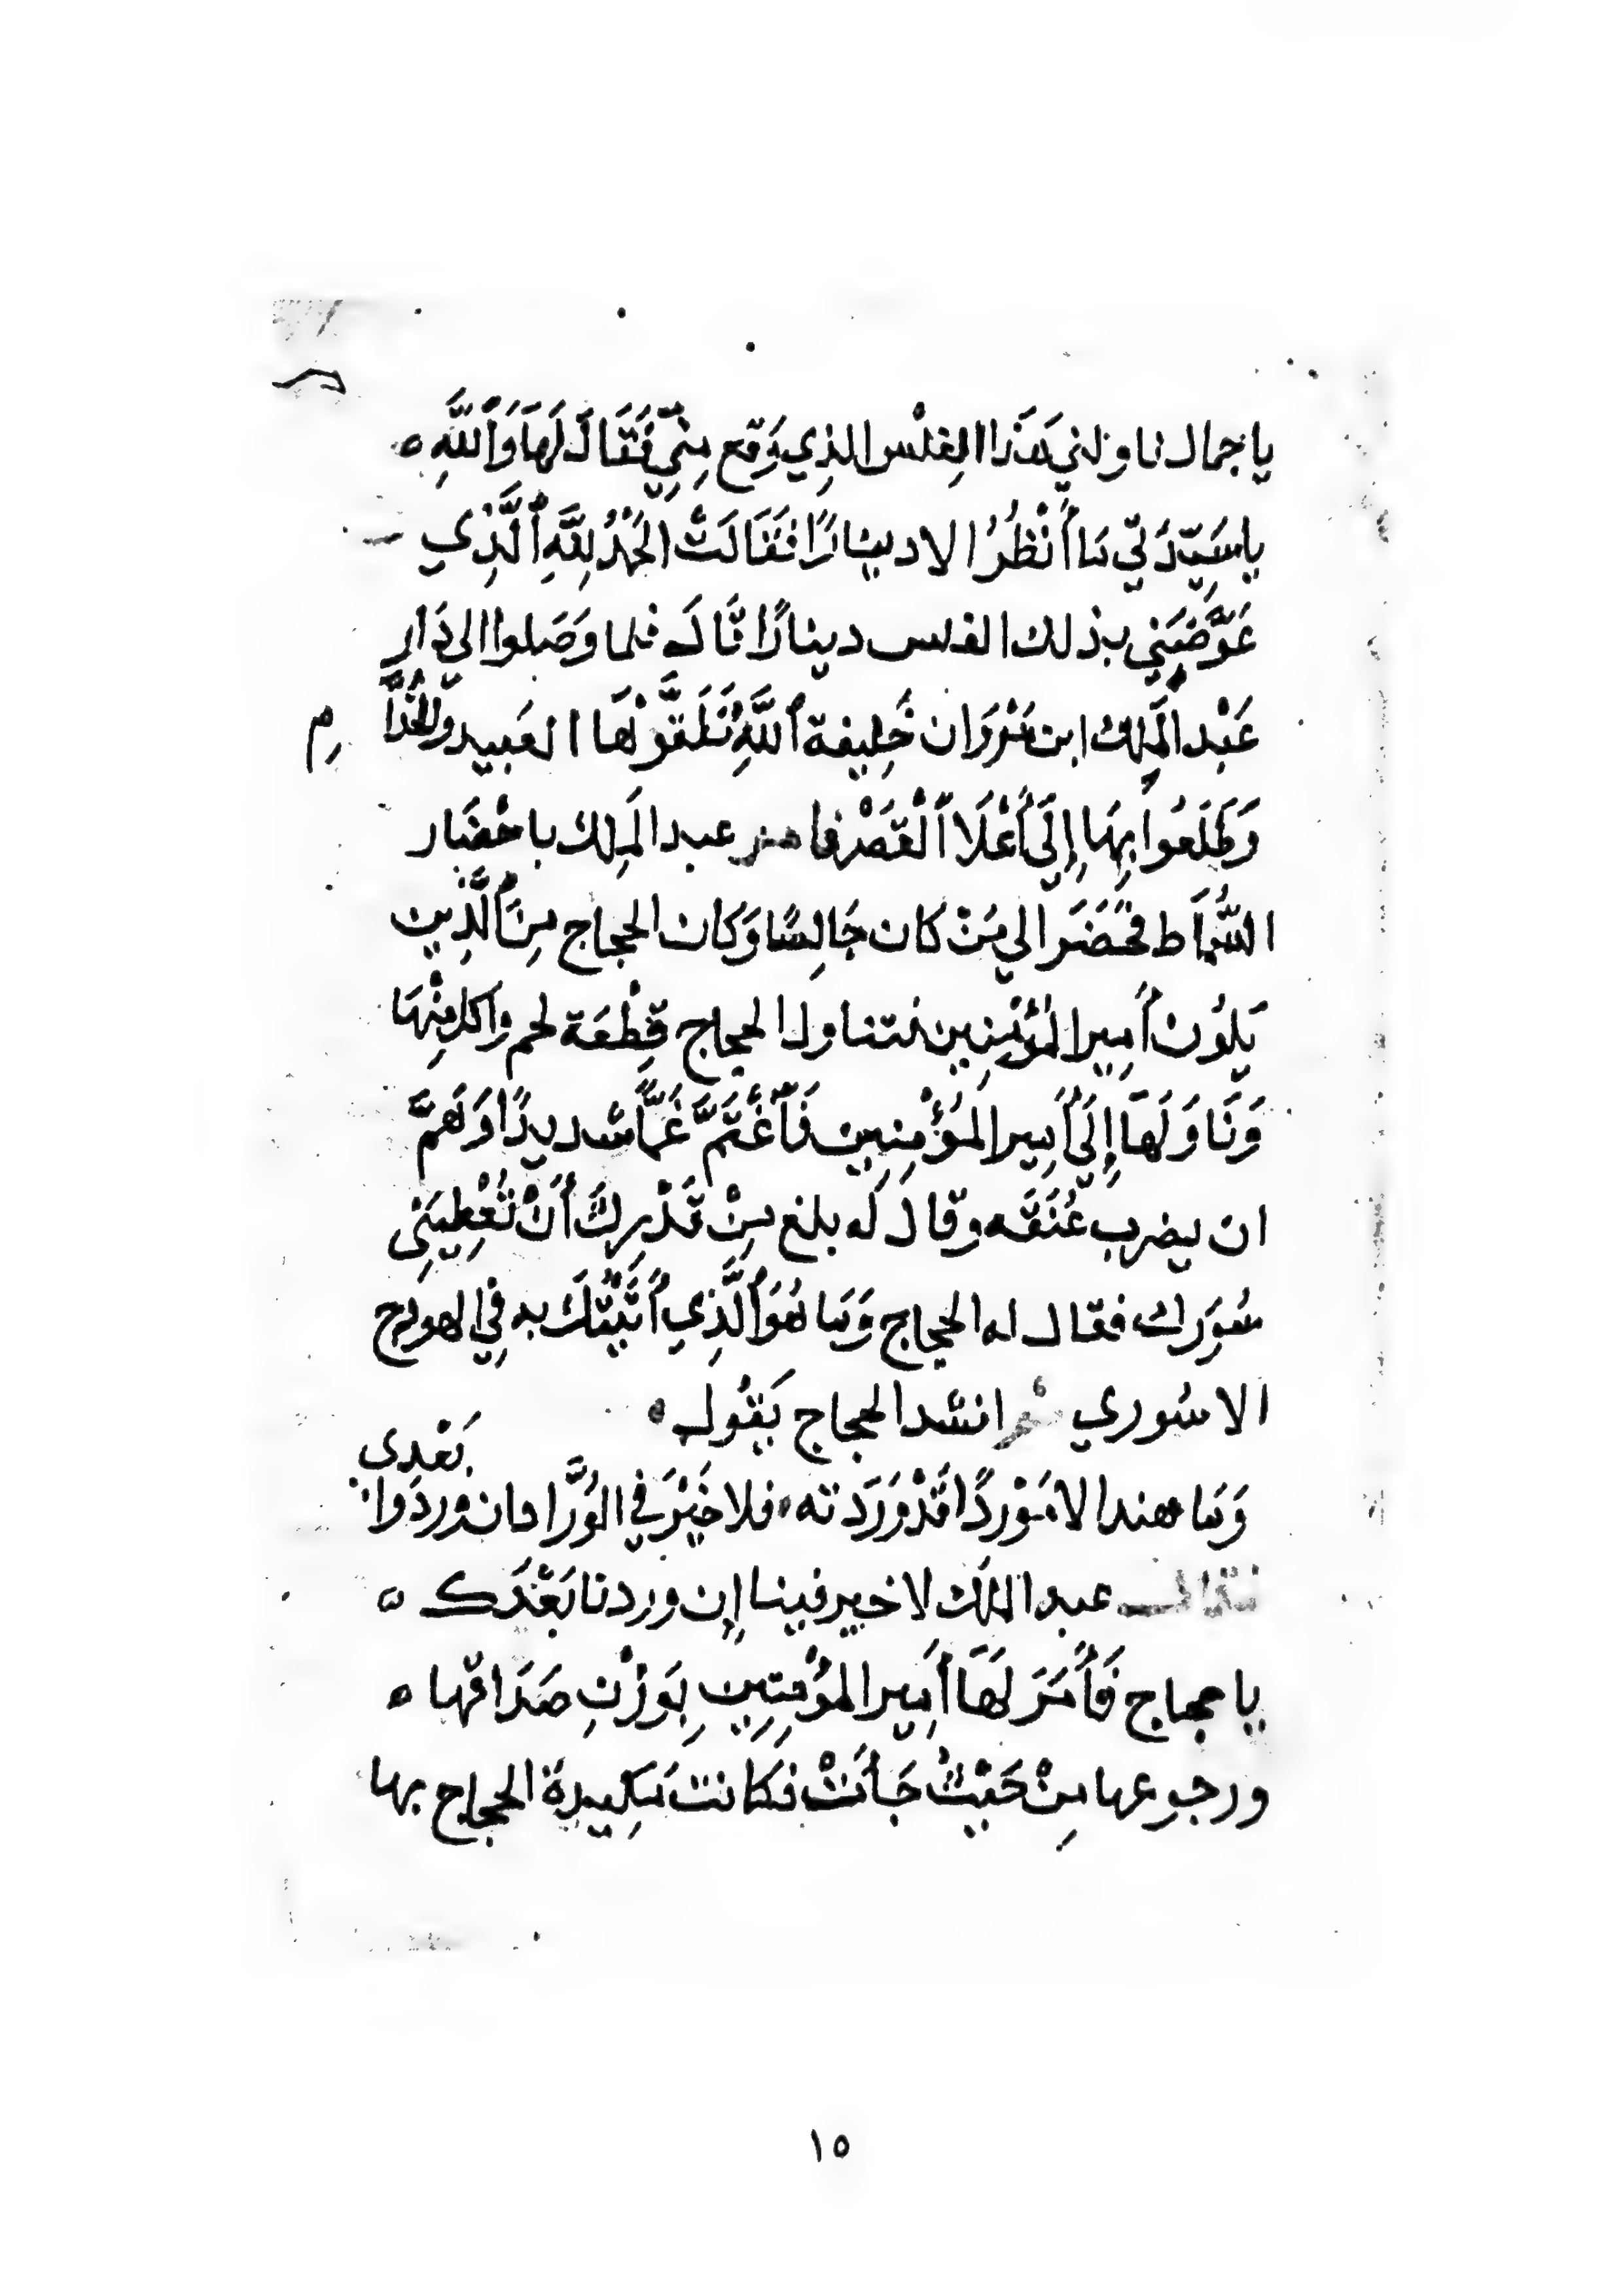 يا جمال ناولني هَذَا الفِلْس الذِي وَقع مِنِّي فَقَالَ لَهَا وَاللَّهِ ه
يا سَيِّدَتِي مَا أَنْظُرُ الا دينارًا فَقَالَتْ الحَمْدُ لِلَّهِ الَّذِي
عَوَّضَنِي بذلك الفلس دينارًا قَالَ فلما وَصَلوا الي دَار
عَبْد المَلِك ابن مَرْوَان خَلِيفة اللَّهِ تَلَقَّوْهَا العَبيد والخُدَّام
وَطَلَعُوا بِهَا إِلَي أَعْلَا الْقَصْر فامر عبد المَلِك باحْضَار
السُّمَاط فحَضَرَ الي مَنْ كان جَالِسًا وَكان الحجاج مِنَ الَّذِين
يَلُوْن أَمِير المُؤْمِنِين فتناول الحجاج قِطْعَة لحم واكل مِنْهَا
وَنَاوَلَهَا إِلَي أَمِير المُؤْمِنِين فَاغْتَمَّ غَمًّا شديدًا وَهَمَّ
ان يضرب عُنَقَه وقالَ لَه بلغ مِنْ قَدْرِكَ أَنْ تُعْطِيَنِى
سُوَرك فقال له الحجاج وَمَا هُوَ الَّذِي أَتَيْتَكَ به فِي الهودج
الا سُوري ثم انشد الحجاج يَقُول ه
وَمَا هند الا مَوْردًا قَدْ وَرَدته فلا خَيْرَ فِي الوُرَّاد ان وردَوا بَعْدِى
فقال عبد المَلَك لا خير فينا إِن وردنا بَعْدَك ه
يا حجاج فَأَمَرَ لَهَا أَمِير المُؤْمِنِين بِوَزْنِ صَدَاقها ه
ورجوعها مِنْ حَيْثُ جَأتْ فكانت مَكِيدة الحجاج بها
١٥